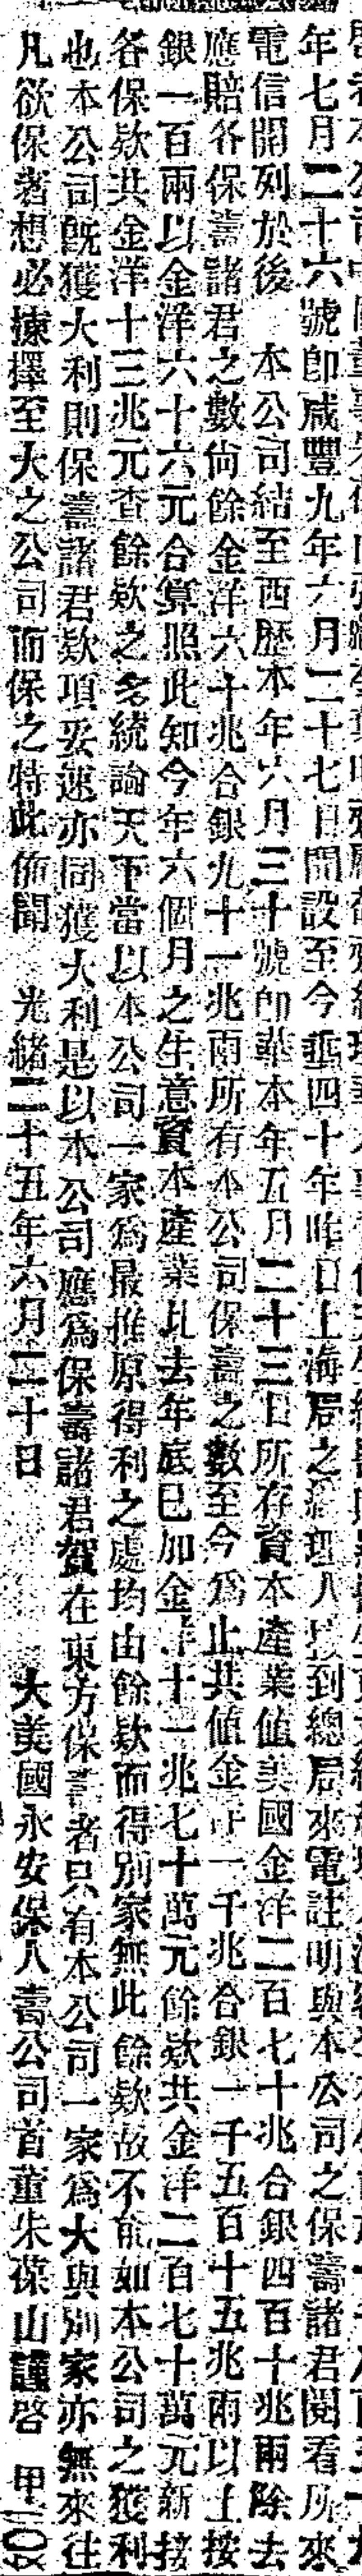 年七月二十六號卽咸豐九年六月二十七日開設至今垂四十年昨日上海局之經理人接到總局來電註明與本公司之保壽諸君閱看所來
電信開列於後　本公司結至西歷本年六月三十號卽華本年五月二十三日所存資本產業值美國金洋二百七十兆合銀四百十兆兩除去
應賠各保壽諸君之數尙餘金洋六十兆合銀九十一兆兩所有本公司保壽之數至今爲止共値金洋一千兆合銀一千五百十五兆兩以上按
銀一百兩以金洋六十六元合算照此知今年六個月之生意資本產業比去年底已加金洋十一兆七十萬元餘欵共金洋二百七十萬元新接
各保欵共金洋十三兆元查餘欵之多統論天下當以本公司一家爲最推原得利之處均由餘欵而得別家無此餘欵故不能如本公司之獲利
也本公司旣獲大利則保壽諸君欵項妥速亦同獲大利是以本公司應爲保壽諸君賀在東方保壽者只有本公司一家爲大與別家亦無來往
凡欲保者想必揀擇至大之公司而保之特此佈聞　光緒二十五年六月二十日　大美國永安保人壽公司首董朱葆山謹啓　甲